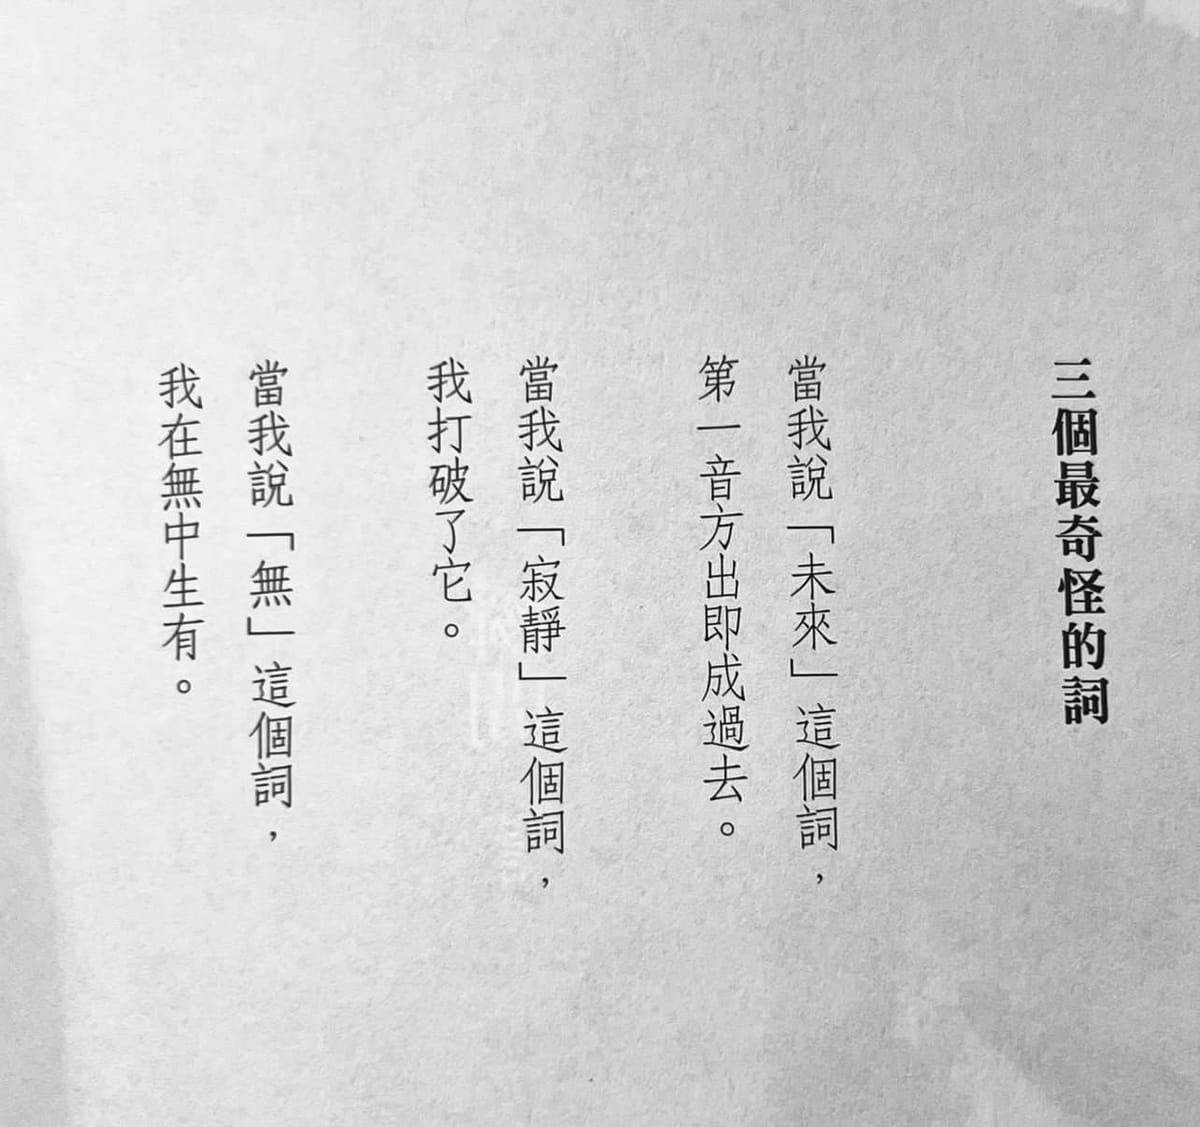 三個最奇怪的詞
當我說「未來」這個詞，
第一音方出即成過去。
當我說「寂靜」這個詞，
我打破了它。
當我說「無」這個詞，
我在無中生有。